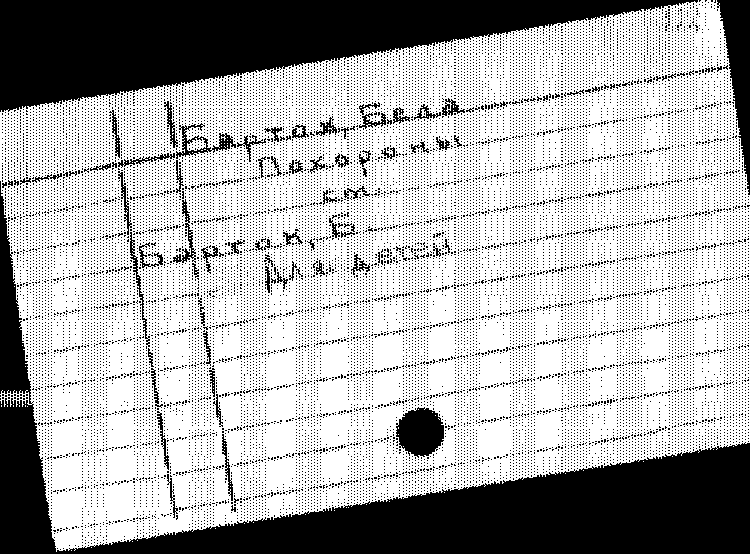 Барток, Бела
Похороны
см.
Барток, Б.
Для детей